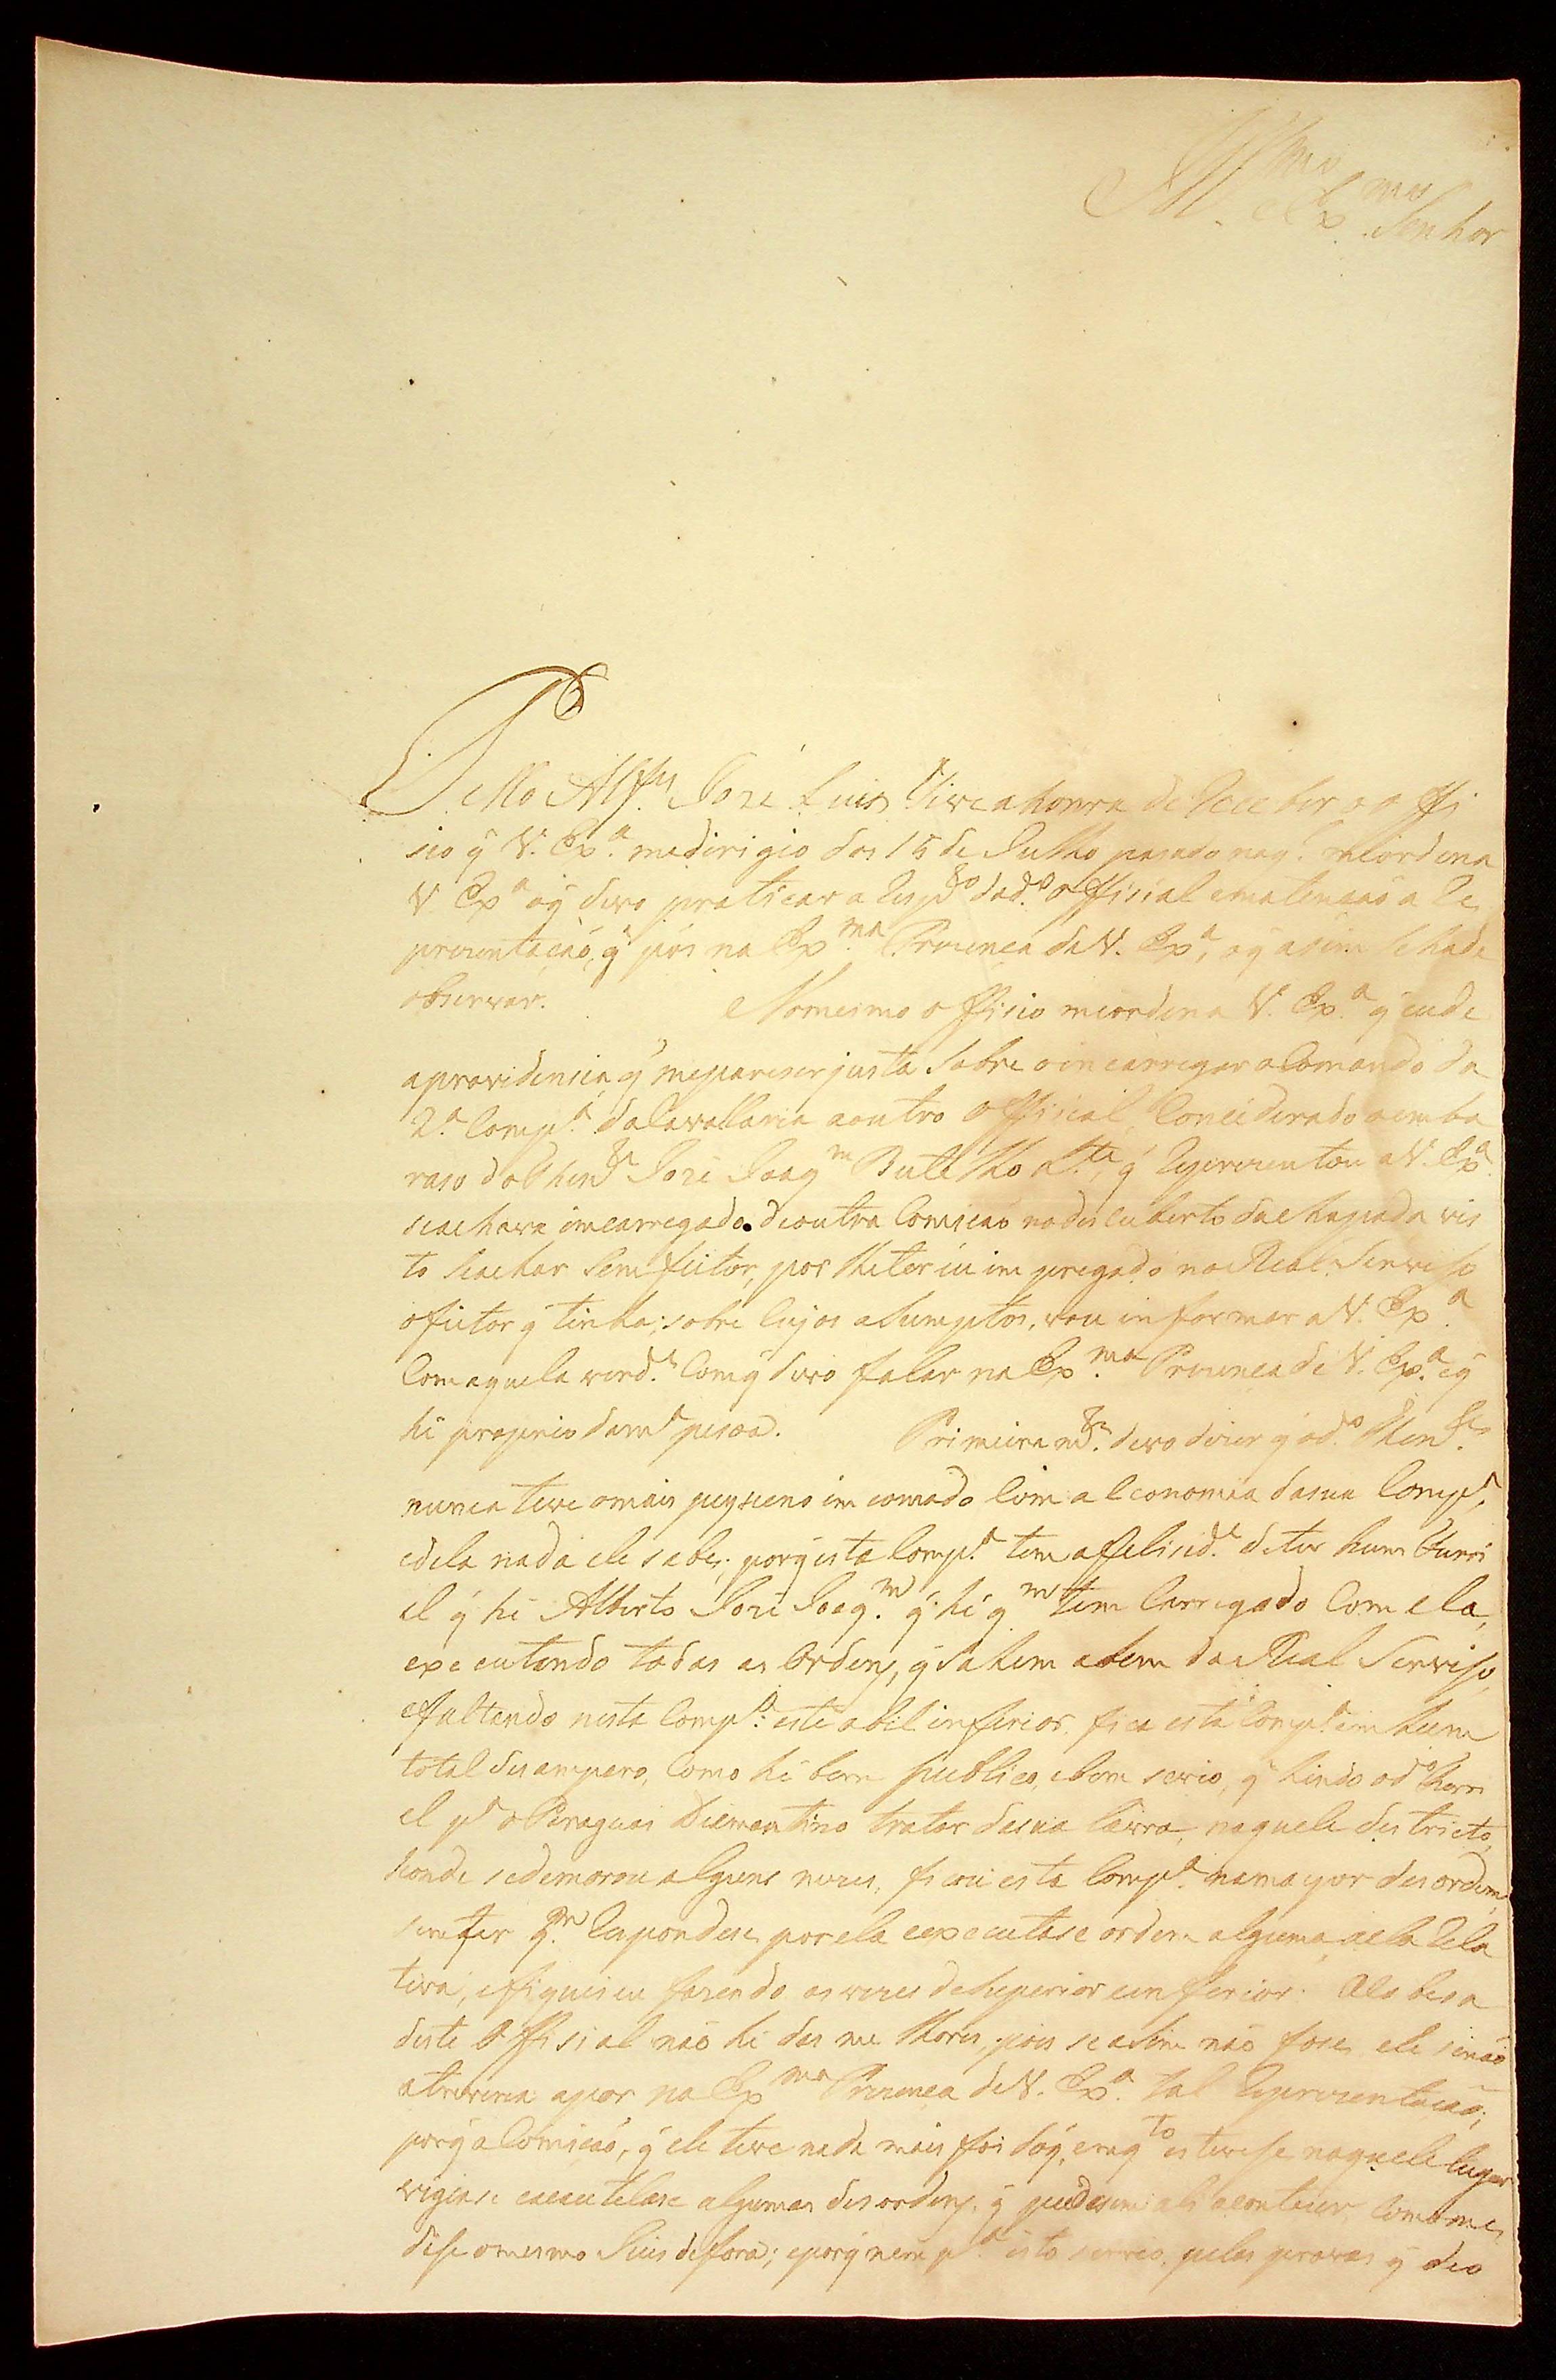 Ill.mo e Ex.mo Senhor
Pello Alf.es Joze Luis tive a honra de Receber o offi
sio q̃ V. Ex.a me dirigio dos 15 de Julho pasado no q.l me ordena
V. Ex.a o q̃ devo praticar a Resp.to do d.o Offisial em atensaõ a Re
prezentaçaõ, q̃ pós na Ex.ma Prezença de V. Ex.a, o q̃ asim se hade
observar. No mesmo offisio me ordena V. Ex.a q̃ eu de
a providensia, q̃ me pareser justa sobre o incarregar o Comando da
2.a Comp.a da Cavallaria a outro Offisial, Conciderado o emba
raso do Then.e Joze Joaq.m Botelho q̃ Reprezentou a V. Ex.a
se achava imcarregado de outra Comisaõ no descuberto da chapada vis
to se achar sem feitor, por lhe ter eu im pregado no Real Serviso
o feitor q̃ tinha; sobre cujos asumptos, vou informar a V. Ex.a
Com aquela verd.e Com q̃ devo falar na Ex.ma Prezença de V. Ex.a e q̃
hé proprio da m.a pesoa. Primeiram.te devo dizer q̃ o d.o Then.e
nunca teve o mais pequeno im comodo Com a Economia da sua Comp.a,
e dela nada ele sabe; porq̃ esta Comp.a tem a felisid.e de ter hum Furri
el q̃ hé Alberto Joze Joaq.m q̃ hé q.m tem Carregado Com ela,
executando todas as Ordens, q̃ sahem a bem do Real Serviso,
e faltando nesta Comp.a este abil inferior, fica esta Comp.a em hum
total desamparo, Como hé bem publico, e bem serio, q̃ hindo o d.o Furri
el p.a o Paraguai Diamantino tratar da sua Lavra, naquele destricto,
honde se demorou alguns mezes, ficou esta Comp.a na mayor desordem
sem ter q.m Respondese por ela e executase ordem alguma a ela Rela
tiva, e fiquei eu fazendo as vezes de superior e inferior. A Cabesa
deste Offisial naõ hé das melhores, pois se asim naõ fose, ele se naõ
atreveria a por na Ex.ma Prezença de V. Ex.a tal Reprezentaçaõ;
porq̃ a Comisaõ, q̃ ele teve nada mais foi do q̃, emq.to estivese naquele lugar
vigiase e acautelase algumas desordens, q̃ pudesem ali aconteser, Como me
dise o mesmo Juis de fora; e porq̃ nem p.a isto servio, pelas provas q̃ deo